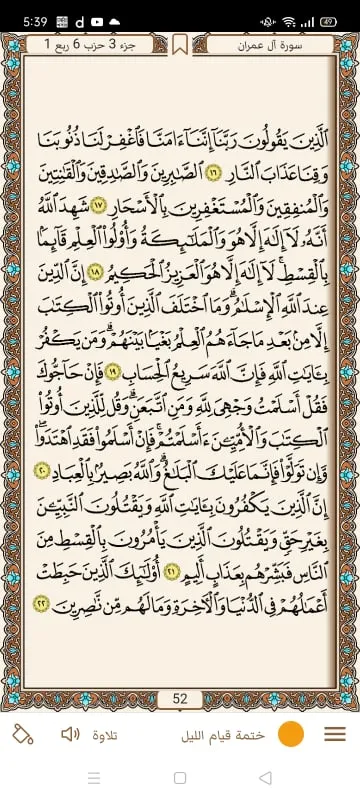 5:39
49
جزء 3 حزب 6 ربع 1
سورة آل عمران
ٱلَّذِينَ يَقُولُونَ رَبَّنَآ إِنَّنَآ ءَامَنَّا فَٱغْفِرْ لَنَا ذُنُوبَنَا
وَقِنَا عَذَابَ ٱلنَّارِ ١٦ ٱلصَّٰبِرِينَ وَٱلصَّٰدِقِينَ وَٱلْقَٰنِتِينَ
وَٱلْمُنفِقِينَ وَٱلْمُسْتَغْفِرِينَ بِٱلْأَسْحَارِ ١٧ شَهِدَ ٱللَّهُ
أَنَّهُۥ لَآ إِلَٰهَ إِلَّا هُوَ وَٱلْمَلَٰٓئِكَةُ وَأُو۟لُوا۟ ٱلْعِلْمِ قَآئِمًۢا
بِٱلْقِسْطِ ۚ لَآ إِلَٰهَ إِلَّا هُوَ ٱلْعَزِيزُ ٱلْحَكِيمُ ١٨ إِنَّ ٱلدِّينَ
عِندَ ٱللَّهِ ٱلْإِسْلَٰمُ ۗ وَمَا ٱخْتَلَفَ ٱلَّذِينَ أُوتُوا۟ ٱلْكِتَٰبَ
إِلَّا مِنۢ بَعْدِ مَا جَآءَهُمُ ٱلْعِلْمُ بَغْيًۢا بَيْنَهُمْ ۗ وَمَن يَكْفُرْ
بِـَٔايَٰتِ ٱللَّهِ فَإِنَّ ٱللَّهَ سَرِيعُ ٱلْحِسَابِ ١٩ فَإِنْ حَآجُّوكَ
فَقُلْ أَسْلَمْتُ وَجْهِىَ لِلَّهِ وَمَنِ ٱتَّبَعَنِ ۗ وَقُل لِّلَّذِينَ أُوتُوا۟
ٱلْكِتَٰبَ وَٱلْأُمِّيِّـۧنَ ءَأَسْلَمْتُمْ ۚ فَإِنْ أَسْلَمُوا۟ فَقَدِ ٱهْتَدَوا۟ ۖ
وَّإِن تَوَلَّوْا۟ فَإِنَّمَا عَلَيْكَ ٱلْبَلَٰغُ ۗ وَٱللَّهُ بَصِيرٌۢ بِٱلْعِبَادِ ٢٠
إِنَّ ٱلَّذِينَ يَكْفُرُونَ بِـَٔايَٰتِ ٱللَّهِ وَيَقْتُلُونَ ٱلنَّبِيِّـۧنَ
بِغَيْرِ حَقٍّ وَيَقْتُلُونَ ٱلَّذِينَ يَأْمُرُونَ بِٱلْقِسْطِ مِنَ
ٱلنَّاسِ فَبَشِّرْهُم بِعَذَابٍ أَلِيمٍ ٢١ أُو۟لَٰٓئِكَ ٱلَّذِينَ حَبِطَتْ
أَعْمَٰلُهُمْ فِى ٱلدُّنْيَا وَٱلْـَٔاخِرَةِ وَمَا لَهُم مِّن نَّٰصِرِينَ ٢٢
52
ختمة قيام الليل
تلاوة